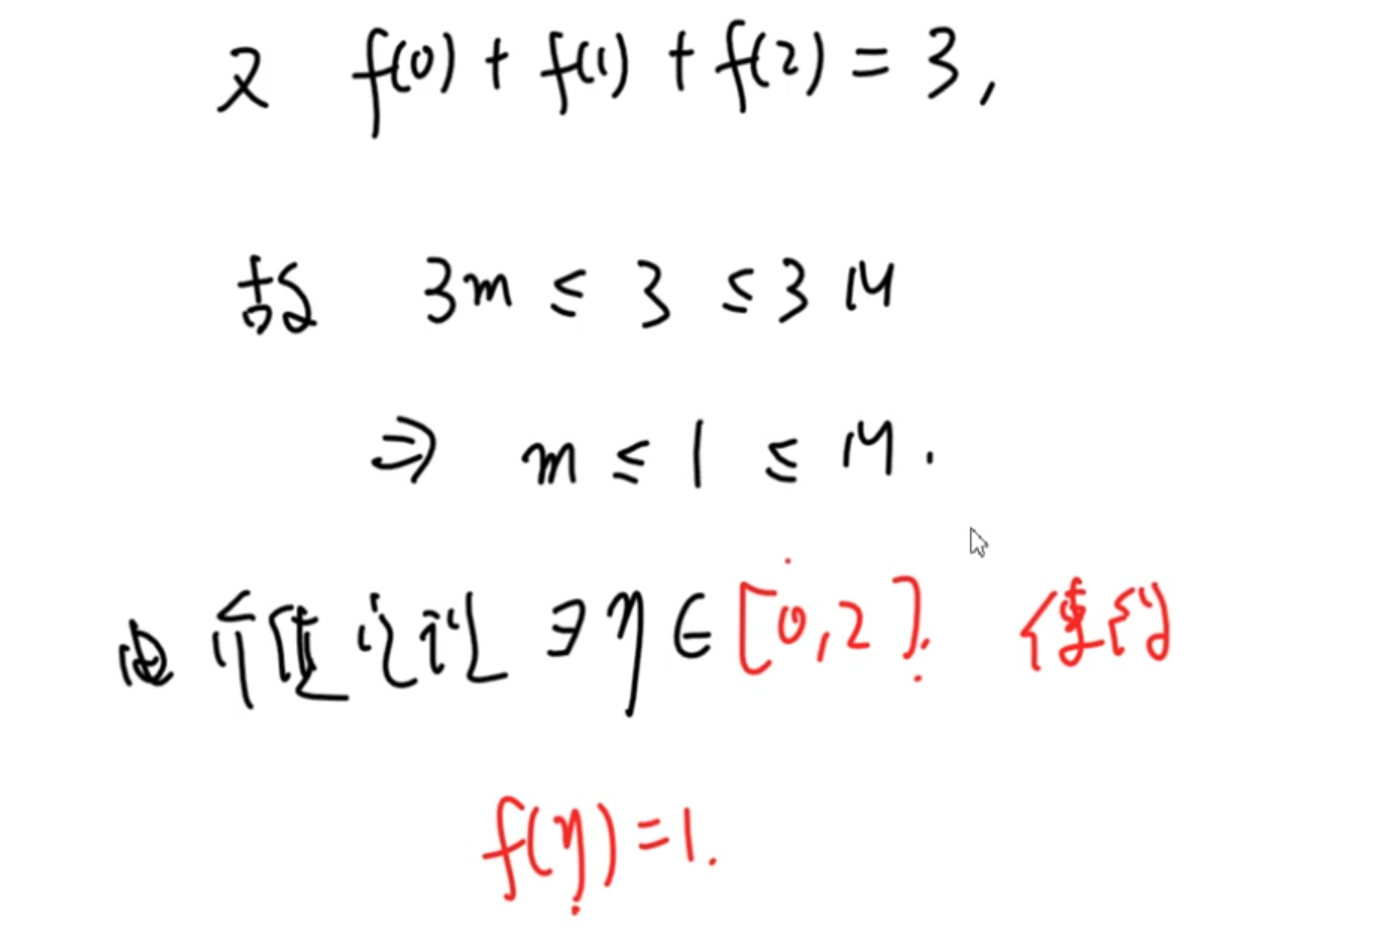 又 f(0) + f(1) + f(2) = 3,
故 3m ≤ 3 ≤ 3M
⇒ m ≤ 1 ≤ M.
由介值定理 ∃ η ∈ [0,2]. 使得
f(η) = 1.